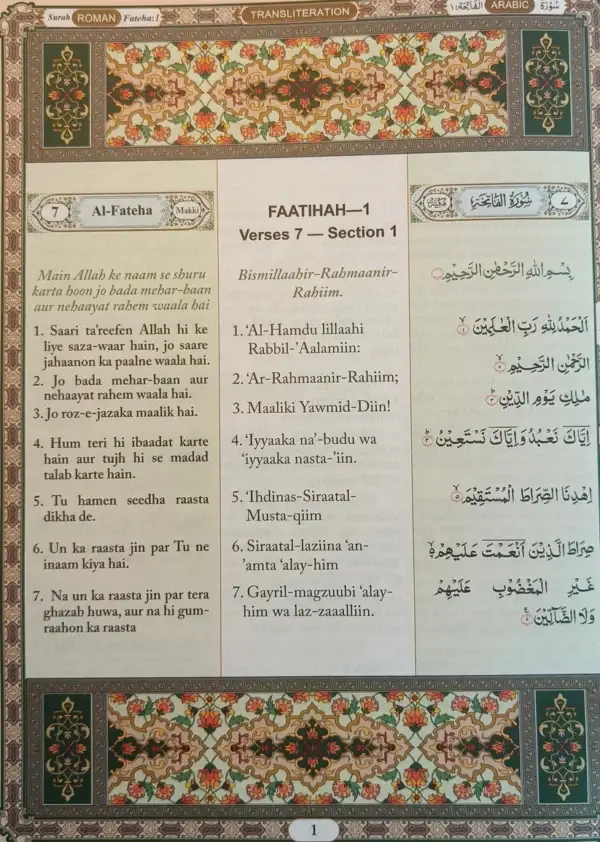 Surah ROMAN Fateha:1
TRANSLITERATION
الفَاتِحَة:١ ARABIC سُوْرَةُ
7 Al-Fateha Makki
Main Allah ke naam se shuru
karta hoon jo bada mehar-baan
aur nehaayat rahem waala hai
1. Saari ta'reefen Allah hi ke
liye saza-waar hain, jo saare
jahaanon ka paalne waala hai.
2. Jo bada mehar-baan aur
nehaayat rahem waala hai.
3. Jo roz-e-jazaka maalik hai.
4. Hum teri hi ibaadat karte
hain aur tujh hi se madad
talab karte hain.
5. Tu hamen seedha raasta
dikha de.
6. Un ka raasta jin par Tu ne
inaam kiya hai.
7. Na un ka raasta jin par tera
ghazab huwa, aur na hi gum-
raahon ka raasta
FAATIHAH—1
Verses 7 — Section 1
Bismillaahir-Rahmaanir-
Rahiim.
1. ‘Al-Hamdu lillaahi
Rabbil-’Aalamiin:
2. ‘Ar-Rahmaanir-Rahiim;
3. Maaliki Yawmid-Diin!
4. ‘Iyyaaka na’-budu wa
‘iyyaaka nasta-’iin.
5. ‘Ihdinas-Siraatal-
Musta-qiim
6. Siraatal-laziina ‘an-
‘amta ‘alay-him
7. Gayril-magzuubi ‘alay-
him wa laz-zaaalliin.
٧ سُوْرَةُ الْفَاتِحَة مَكِّيَّة
بِسْمِ اللهِ الرَّحْمٰنِ الرَّحِيْمِ
اَلْحَمْدُ لِلّٰهِ رَبِّ الْعٰلَمِيْنَ ١
الرَّحْمٰنِ الرَّحِيْمِ ٢
مٰلِكِ يَوْمِ الدِّيْنِ ٣
اِيَّاكَ نَعْبُدُ وَاِيَّاكَ نَسْتَعِيْنُ ٤
اِهْدِنَا الصِّرَاطَ الْمُسْتَقِيْمَ ٥
صِرَاطَ الَّذِيْنَ اَنْعَمْتَ عَلَيْهِمْ ٦
غَيْرِ الْمَغْضُوْبِ عَلَيْهِمْ
وَلَا الضَّآلِّيْنَ ٧
1